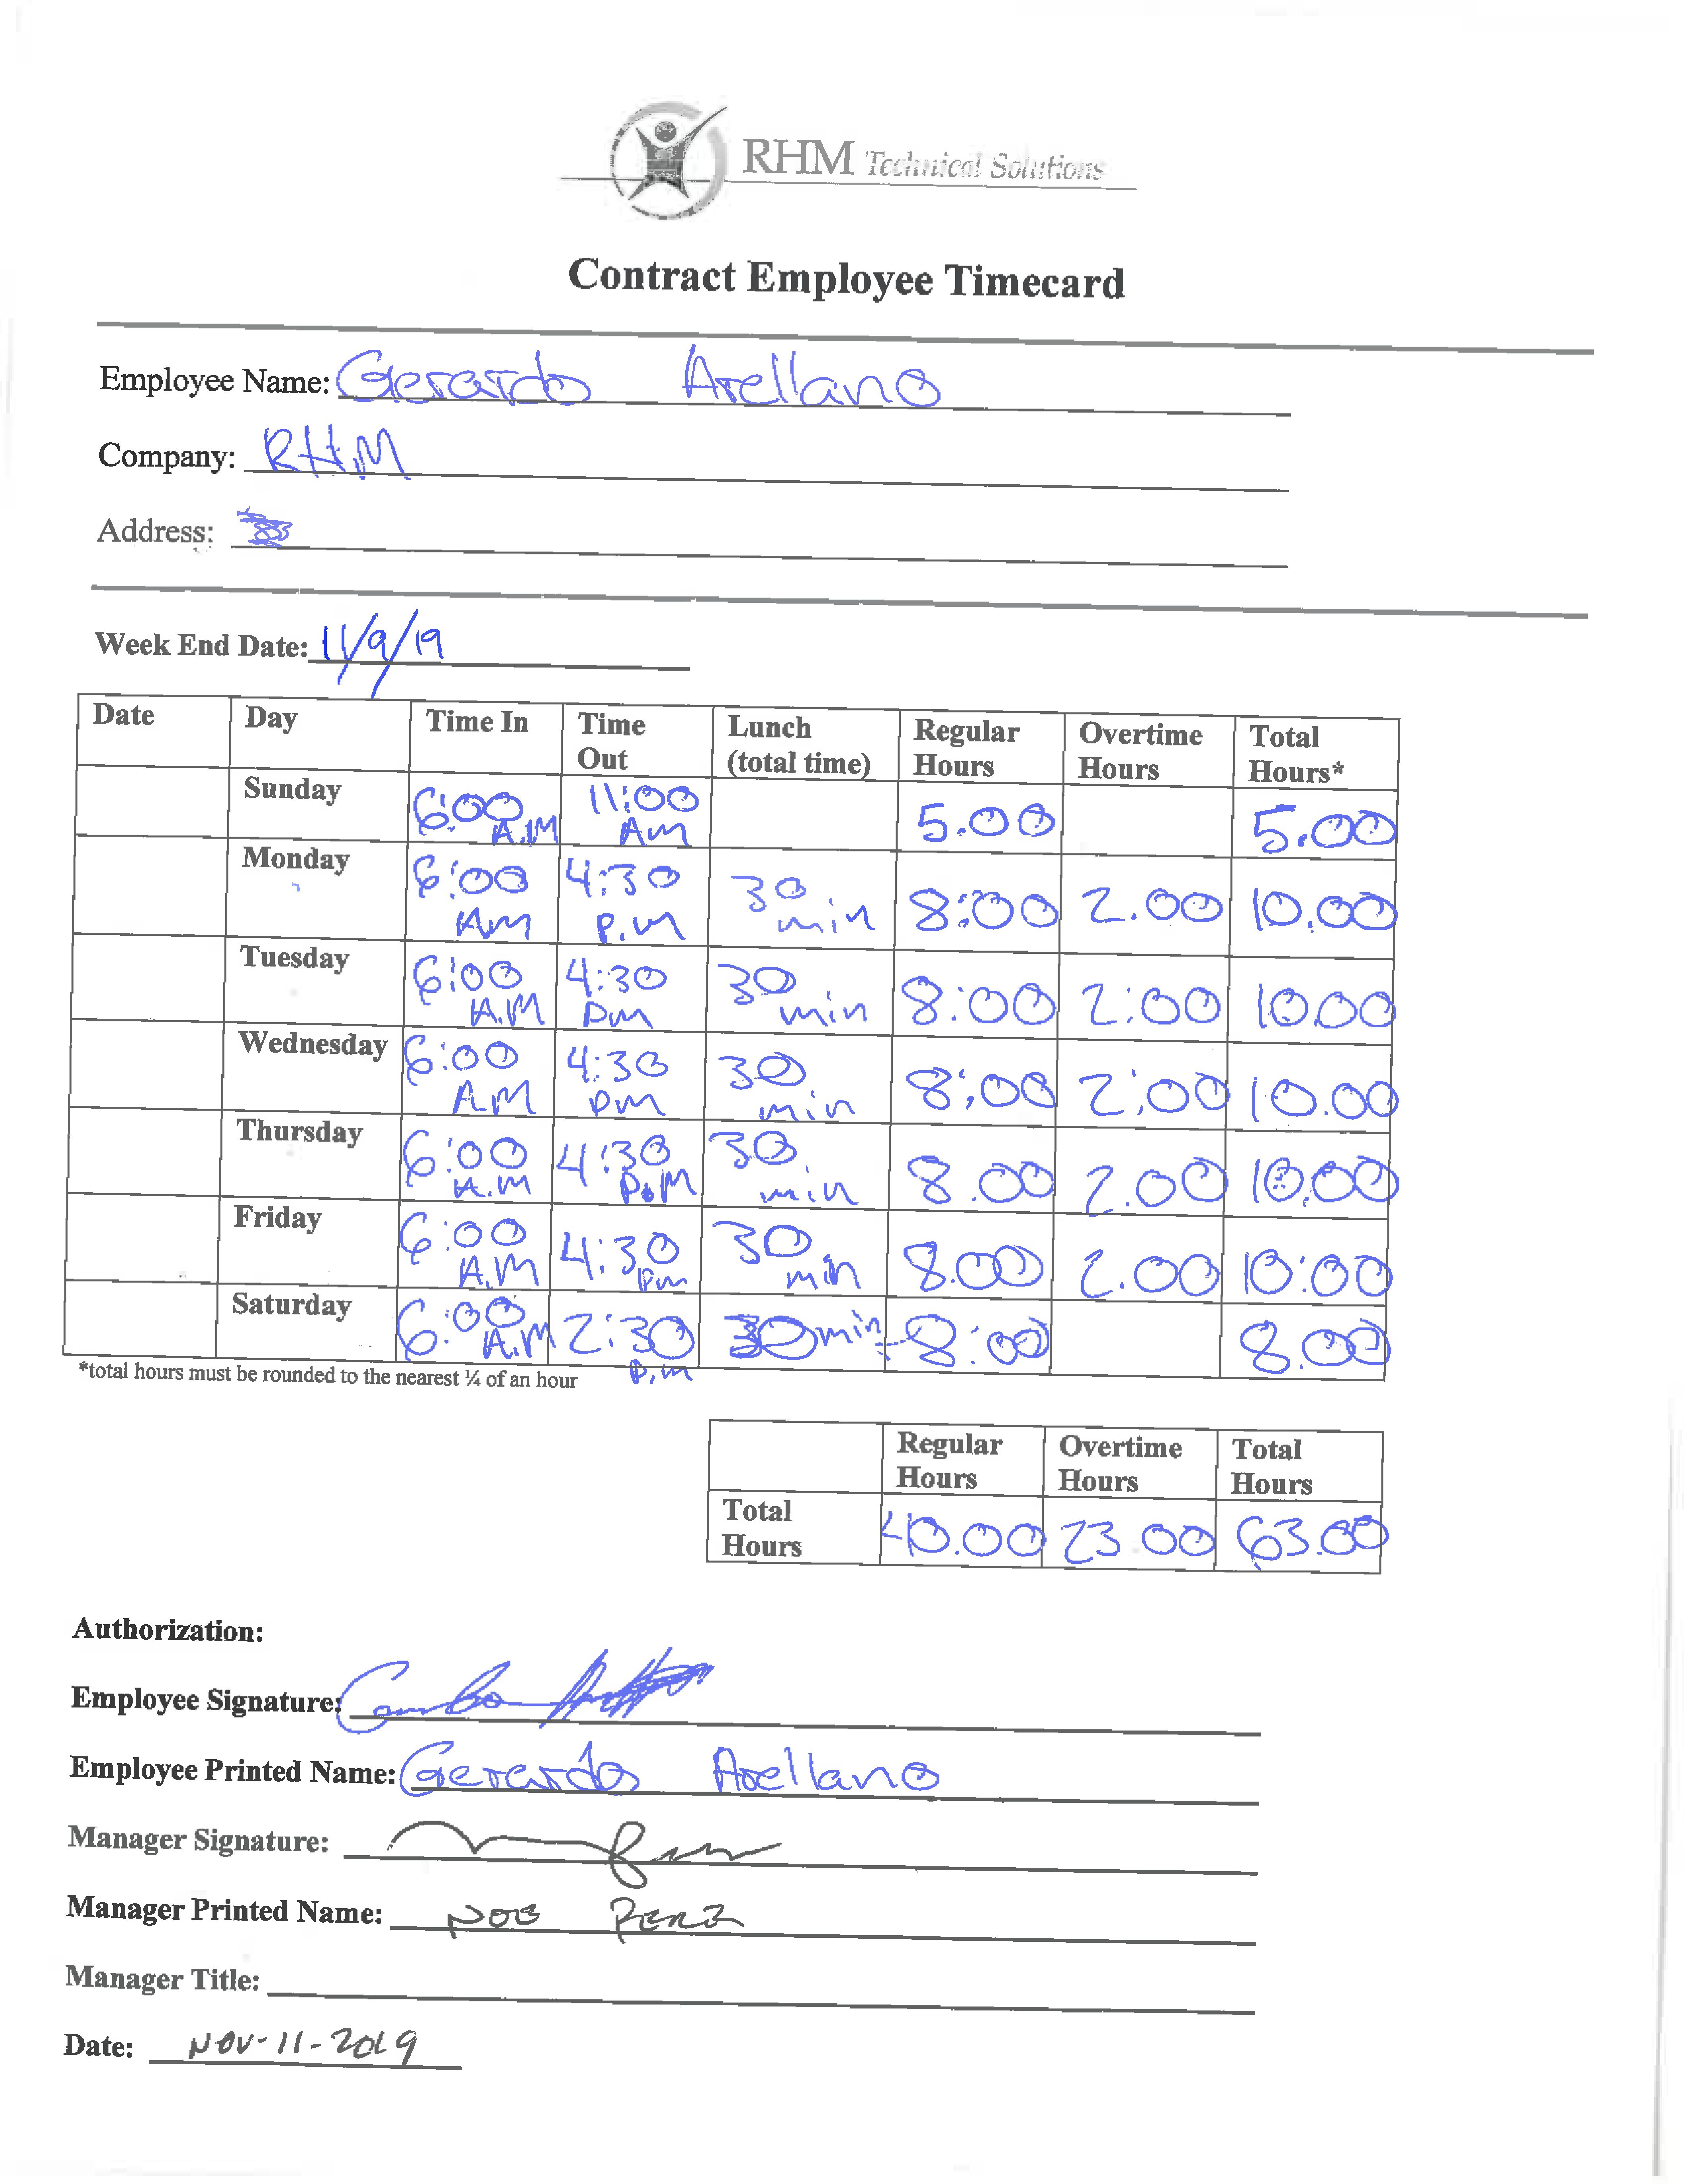 RHM Technical Solutions
Contract Employee Timecard
Employee Name: Gerardo Arellano
Company: RHM
Address:
Week End Date: 11/9/19
Date Day Time In Time Out Lunch (total time) Regular Hours Overtime Hours Total Hours*
Sunday 6:00 A.M 11:00 Am 5.00 5.00
Monday 6:00 AM 4:30 P.m 30 min 8:00 2.00 10.00
Tuesday 6:00 A.M 4:30 Pm 30 min 8:00 2:00 10.00
Wednesday 6:00 A.M 4:30 pm 30 min 8:00 2:00 10.00
Thursday 6:00 A.M 4:30 P.M 30 min 8.00 2.00 10.00
Friday 6:00 A.M 4:30 Pm 30 min 8.00 2.00 10:00
Saturday 6:00 A.M 2:30 P.m 30 min 8:00 8.00
*total hours must be rounded to the nearest ¼ of an hour
Regular Hours Overtime Hours Total Hours
Total Hours 40.00 23.00 63.00
Authorization:
Employee Signature:
Employee Printed Name: Gerardo Arellano
Manager Signature:
Manager Printed Name: Noe
Manager Title:
Date: NOV-11-2019